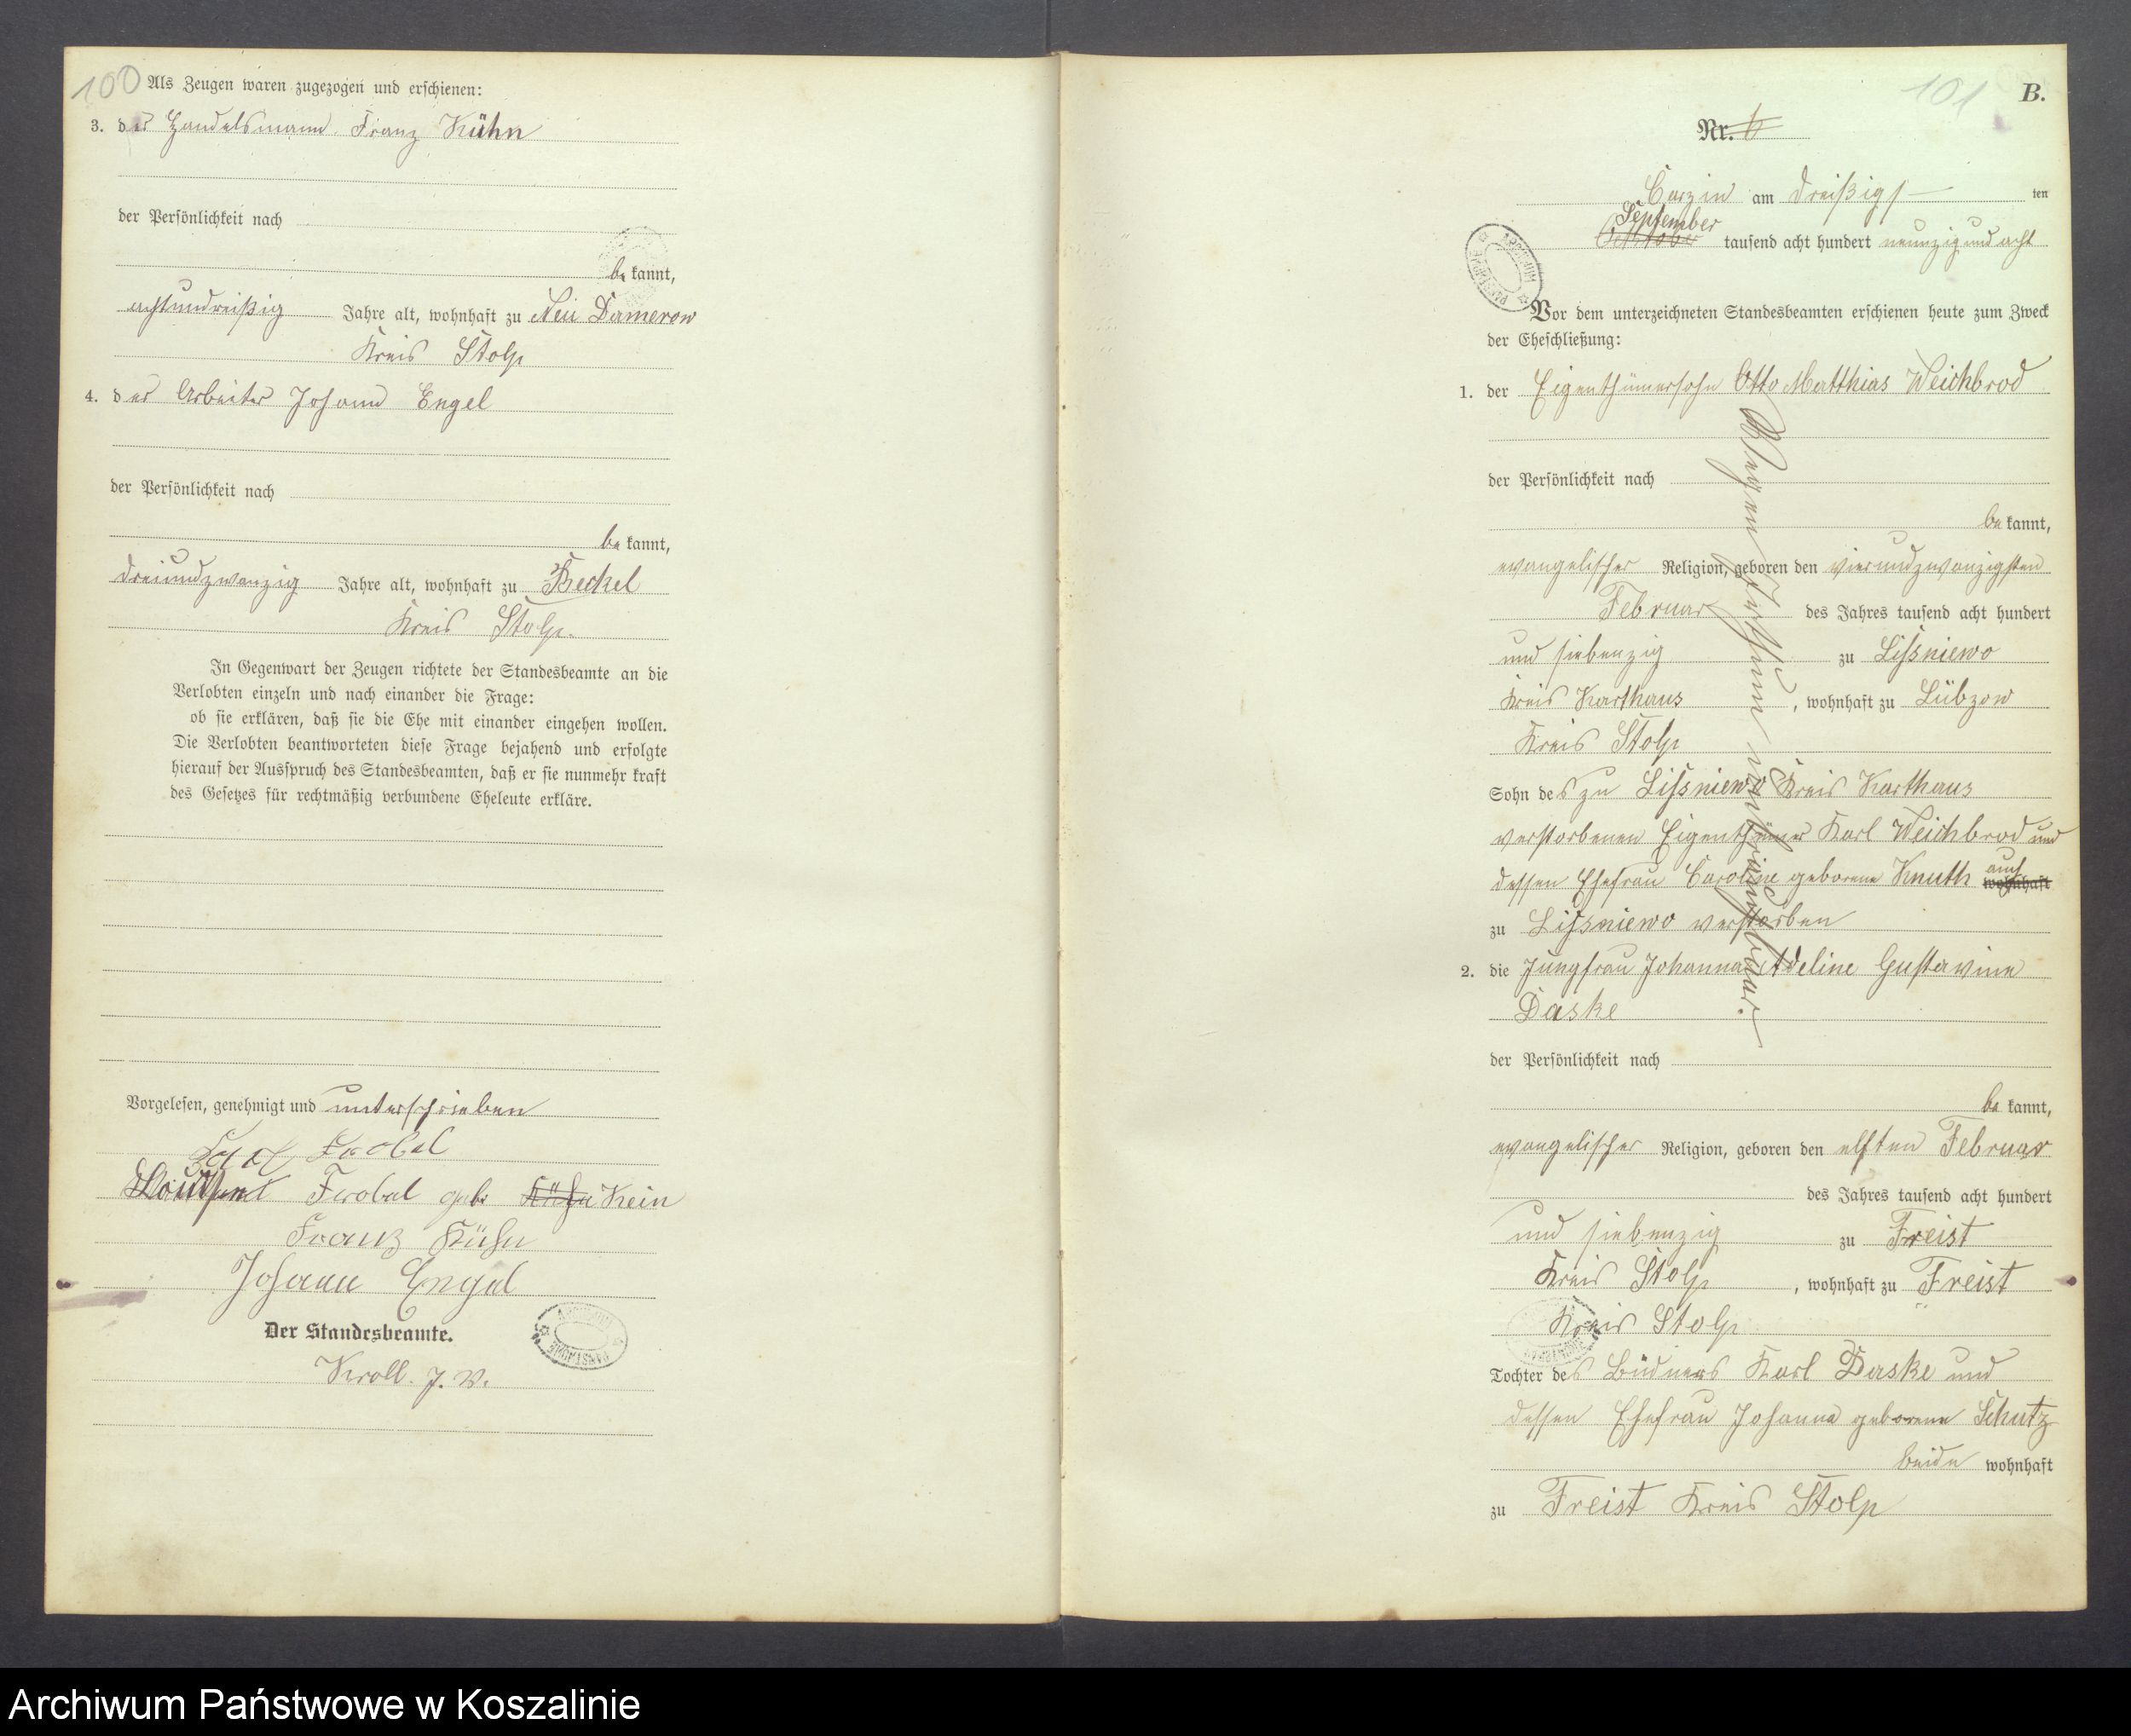 100
Als Zeugen waren zugezogen und erschienen:
3. der Handelsmann Franz Kühn
der Persönlichkeit nach
be kannt,
achtundreißig Jahre alt, wohnhaft zu Neu Damerow
Kreis Stolp
4. der Arbeiter Johann Engel
der Persönlichkeit nach
be kannt,
dreiundzwanzig Jahre alt, wohnhaft zu Beckel
Kreis Stolp.
In Gegenwart der Zeugen richtete der Standesbeamte an die
Verlobten einzeln und nach einander die Frage:
ob sie erklären, daß sie die Ehe mit einander eingehen wollen.
Die Verlobten beantworteten diese Frage bejahend und erfolgte
hierauf der Ausspruch des Standesbeamten, daß er sie nunmehr kraft
des Gesetzes für rechtmäßig verbundene Eheleute erkläre.
Vorgelesen, genehmigt und unterschrieben
Frobel
Frobel geb. Kühn Kein
Franz Kühn
Johann Engel
Der Standesbeamte.
Kroll. J. V.
101
B.
Nr. 6
Carzin am dreißigs ten
September
October tausend acht hundert neunzig und acht
Vor dem unterzeichneten Standesbeamten erschienen heute zum Zweck
der Eheschließung:
1. der Eigenthümersohn Otto Matthias Weichbrod
der Persönlichkeit nach
be kannt,
evangelischer Religion, geboren den vierundzwanzigsten
Februar des Jahres tausend acht hundert
und siebenzig zu Lissniewo
Kreis Karthaus, wohnhaft zu Lübzow
Kreis Stolp
Sohn des zu Lissniewo Kreis Karthaus
verstorbenen Eigenthümer Karl Weichbrod und
dessen Ehefrau Caroline geborene Knuth auch wohnhaft
zu Lissniewo verstorben
2. die Jungfrau Johanna Adeline Gustavine
Daske
der Persönlichkeit nach
be kannt,
evangelischer Religion, geboren den elften Februar
des Jahres tausend acht hundert
und siebenzig zu Freist
Kreis Stolp, wohnhaft zu Freist
Kreis Stolp
Tochter des Büdners Karl Daske und
dessen Ehefrau Johanna geborene Schutz
beide wohnhaft
zu Freist Kreis Stolp
Wegen Irrthum unbrauchbar.
Archiwum Państwowe w Koszalinie